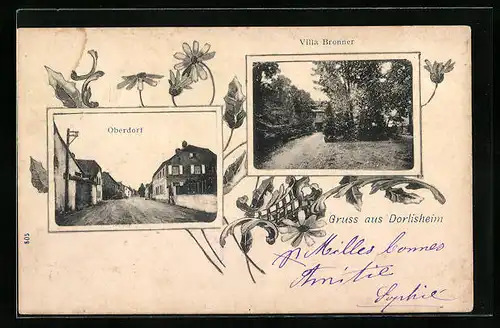 Villa Bronner
Oberdorf
Gruss aus Dorlisheim
Milles bonnes
Amitié
Sophie
508